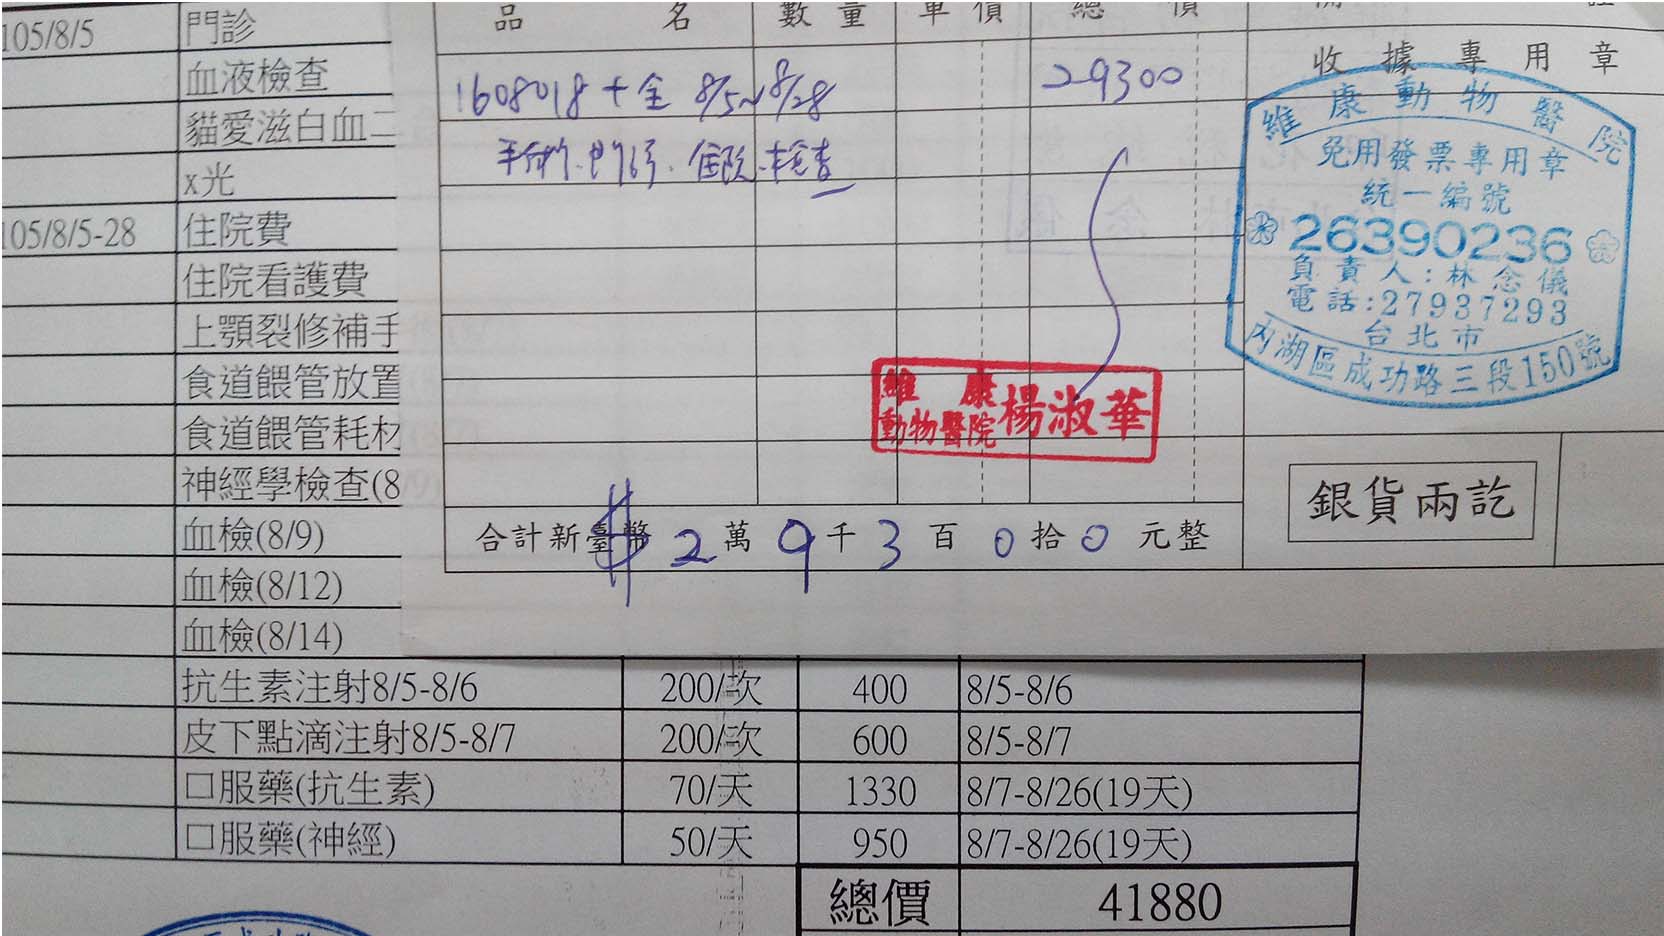 品 名 數 量 單 價 總 價
收 據 專 用 章
1608018 十全 8/5~8/28 29300
手術、門診、住院、檢查
維康動物醫院
免用發票專用章
統一編號
26390236
負責人:林念儀
電話:27937293
台北市
內湖區成功路三段150號
維康
動物醫院
楊淑華
合計新臺幣 2 萬 9 千 3 百 0 拾 0 元整
銀貨兩訖
105/8/5 門診
血液檢查
貓愛滋白血二
x光
105/8/5-28 住院費
住院看護費
上顎裂修補手
食道餵管放置
食道餵管耗材
神經學檢查(8
血檢(8/9)
血檢(8/12)
血檢(8/14)
抗生素注射8/5-8/6 200/次 400 8/5-8/6
皮下點滴注射8/5-8/7 200/次 600 8/5-8/7
口服藥(抗生素) 70/天 1330 8/7-8/26(19天)
口服藥(神經) 50/天 950 8/7-8/26(19天)
總價 41880